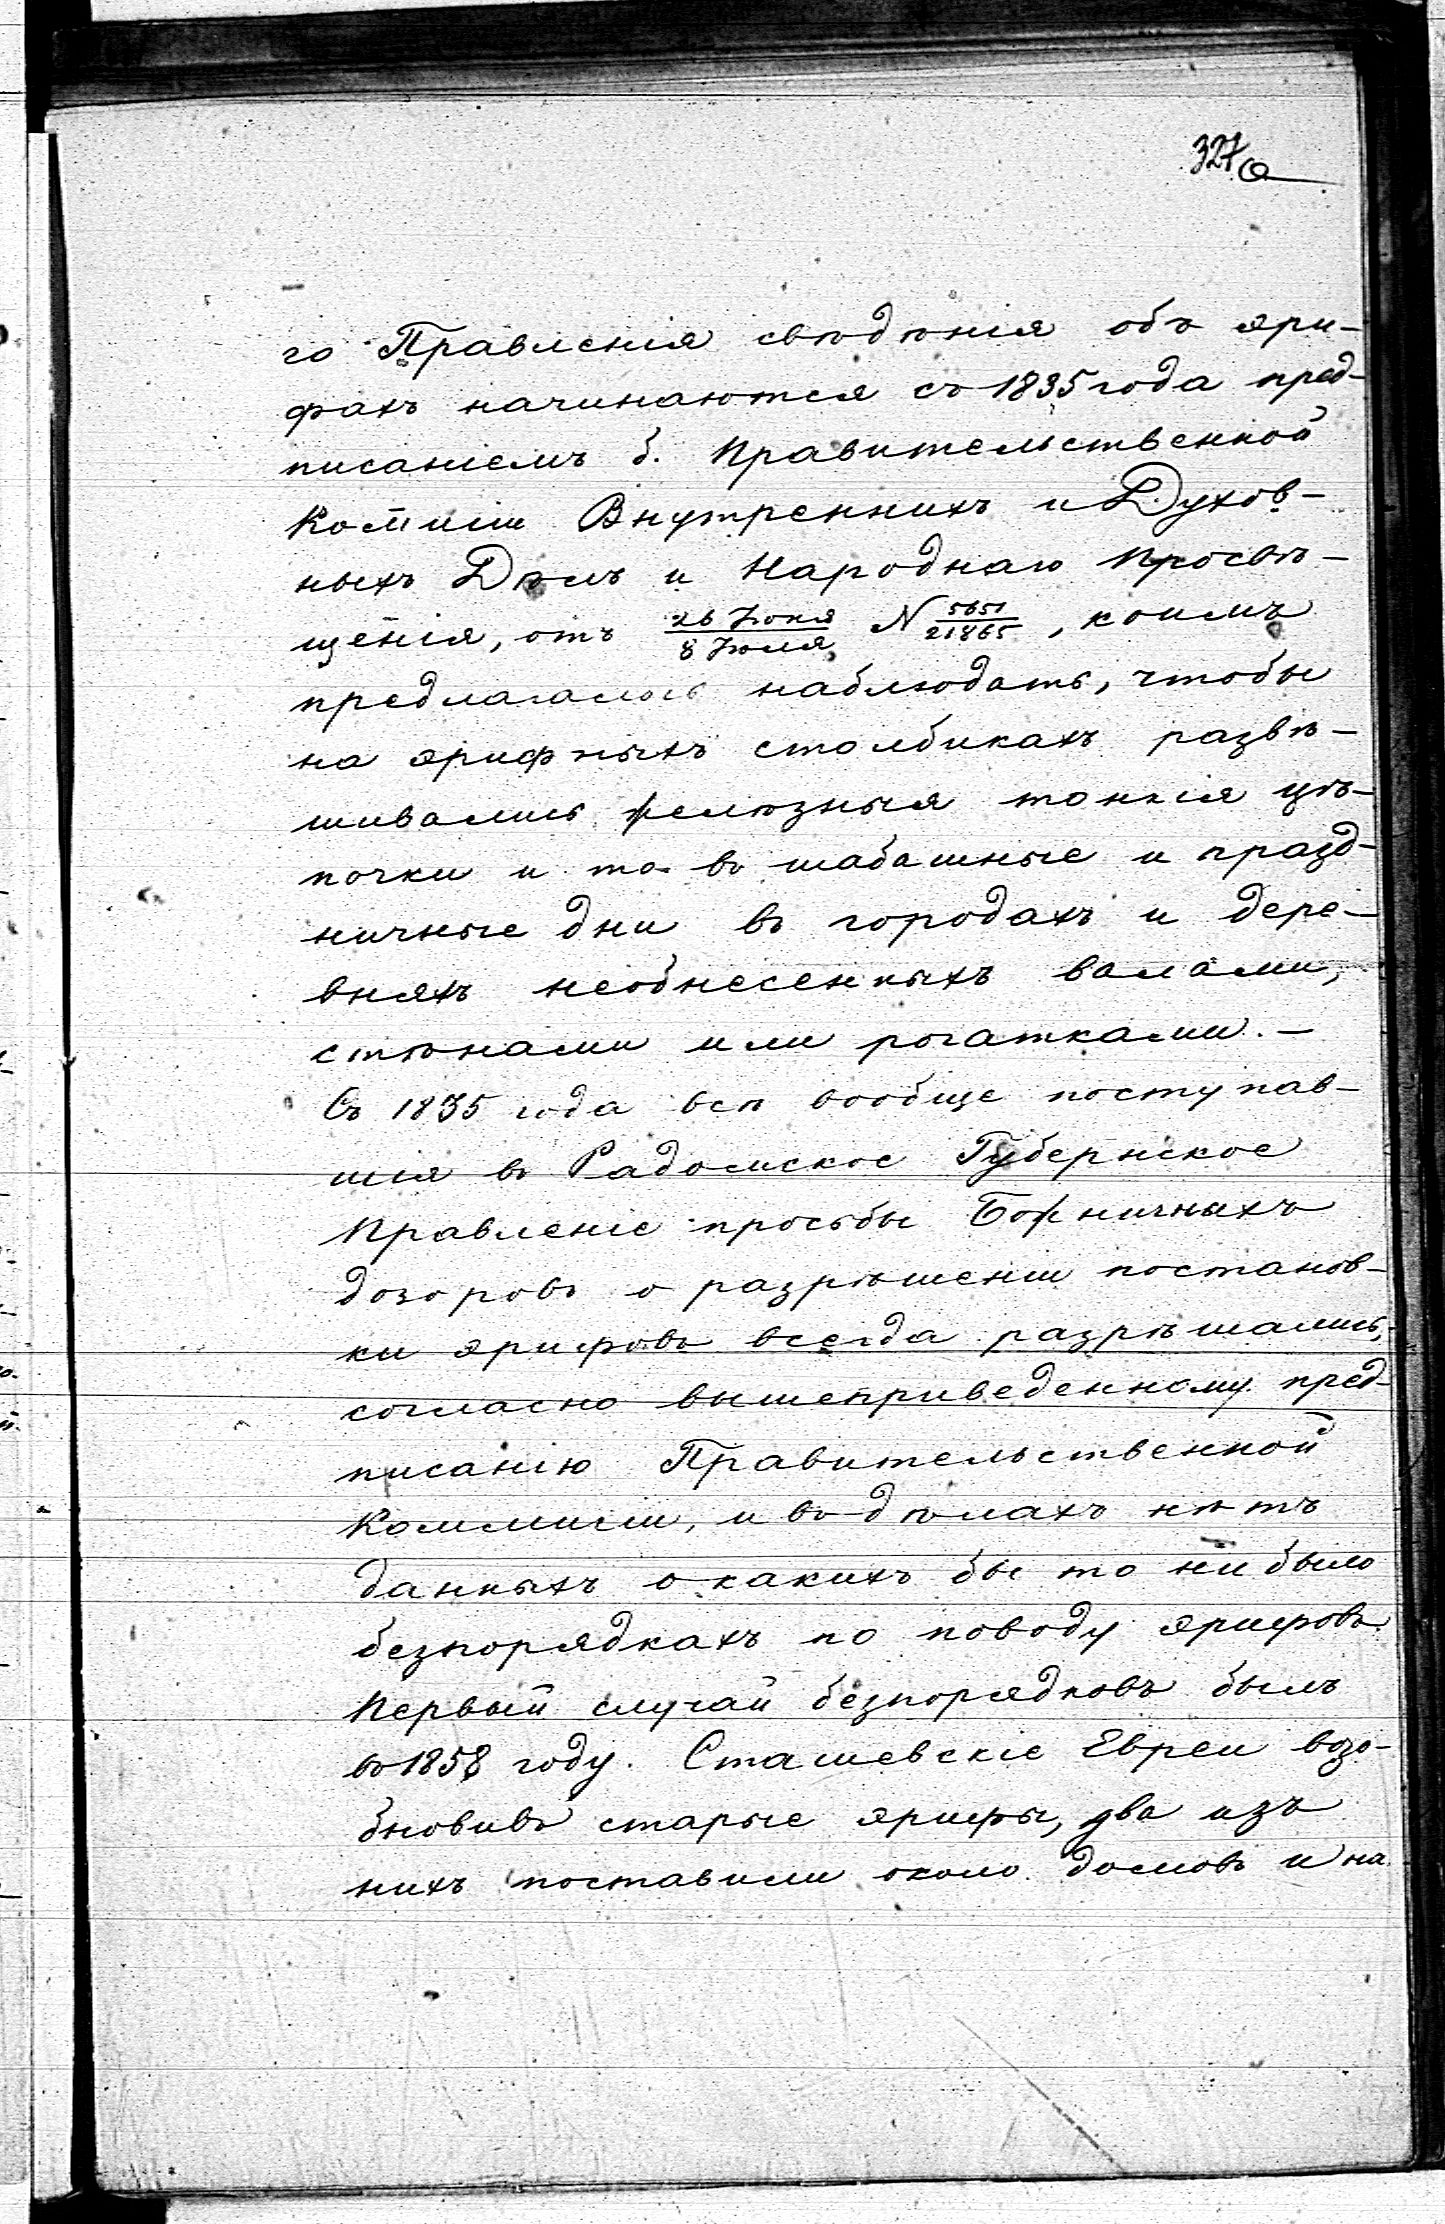 327
го Правленія свѣдѣнія объ эри-
фахъ начинаются съ 1835 года пред-
писаніемъ б. Правительственной
Комисіи Внутреннихъ и Духов-
ныхъ Дѣлъ и Народнаго Просвѣ-
щенія, отъ 26 Іюня/8 Іюля N 5651/21865, коимъ
предлагалось наблюдать, чтобы
на эрифныхъ столбикахъ развѣ-
шивались желѣзныя тонкія цѣ-
почки и то въ шабашные и празд-
ничные дни въ городахъ и дере-
вняхъ необнесенныхъ валами,
стѣнами или рогатками. —
Съ 1835 года всѣ вообще поступав-
шія въ Радомское Губернское
Правленіе просьбы Божничныхъ
дозоровъ о разрѣшеніи постанов-
ки эрифовъ всегда разрѣшались,
согласно вышеприведенному пред-
писанію Правительственной
Коммисіи, и въ дѣлахъ нѣтъ
данныхъ о какихъ бы то ни было
безпорядкахъ по поводу эрифовъ.
Первый случай безпорядковъ былъ
въ 1858 году. Сташевскіе Евреи возо-
бновивъ старые эрифы, два изъ
нихъ поставили около домовъ и на